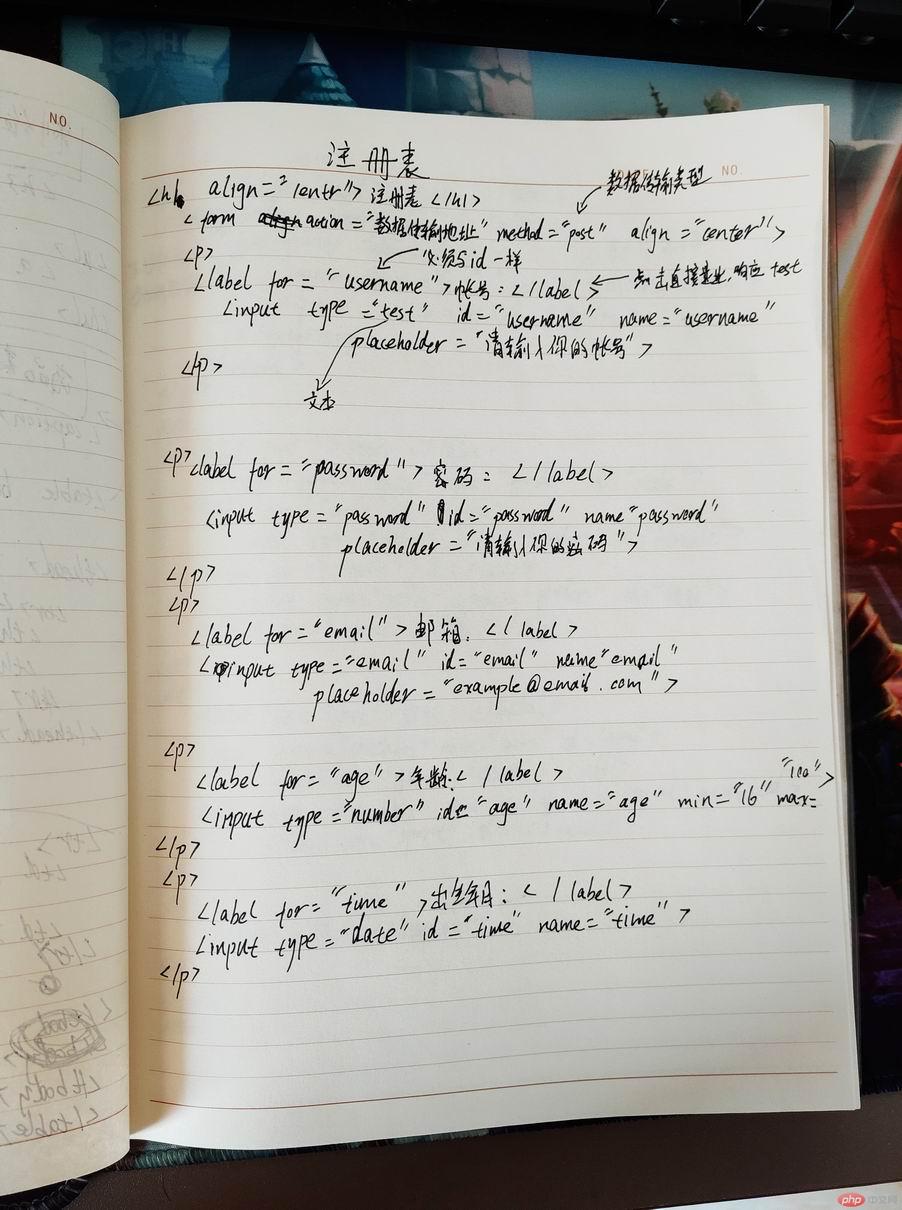 NO.
注册表
NO.
数据传输类型
<h1 align="centr"> 注册表 </h1>
<form action="数据传输地址" method="post" align="center">
<p> 必须与id一样
<label for="username">帐号:</label> 点击直接 响应test
<input type="test" id="username" name="username"
placeholder="请输入你的帐号">
</p>
文本
<p><label for="password">密码:</label>
<input type="password" id="password" name"password"
placeholder="请输入你的密码">
</p>
<p>
<label for="email">邮箱:</label>
<input type="email" id="email" name"email"
placeholder="example@email.com">
<p>
<label for="age">年龄:</label>
"100">
<input type="number" id="age" name="age" min="16" max=
</p>
<p>
<label for="time">出生年月:</label>
<input type="date" id="time" name="time">
</p>
php 中文网